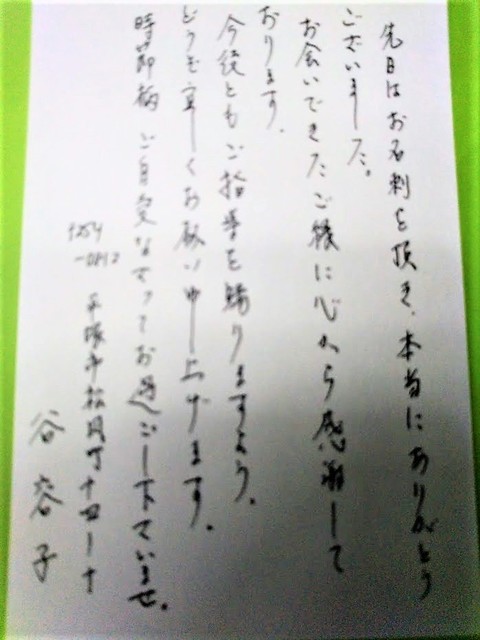 先日はお名刺を頂き、本当にありがとう
ございました。
お会いできたご縁に心から感謝して
おります。
今後ともご指導を賜りますよう、
どうぞ宜しくお願い申し上げます。
時節柄ご自愛なさってお過ごし下さいませ。
〒254
-0812
平塚市松風町十四ー十
谷容子